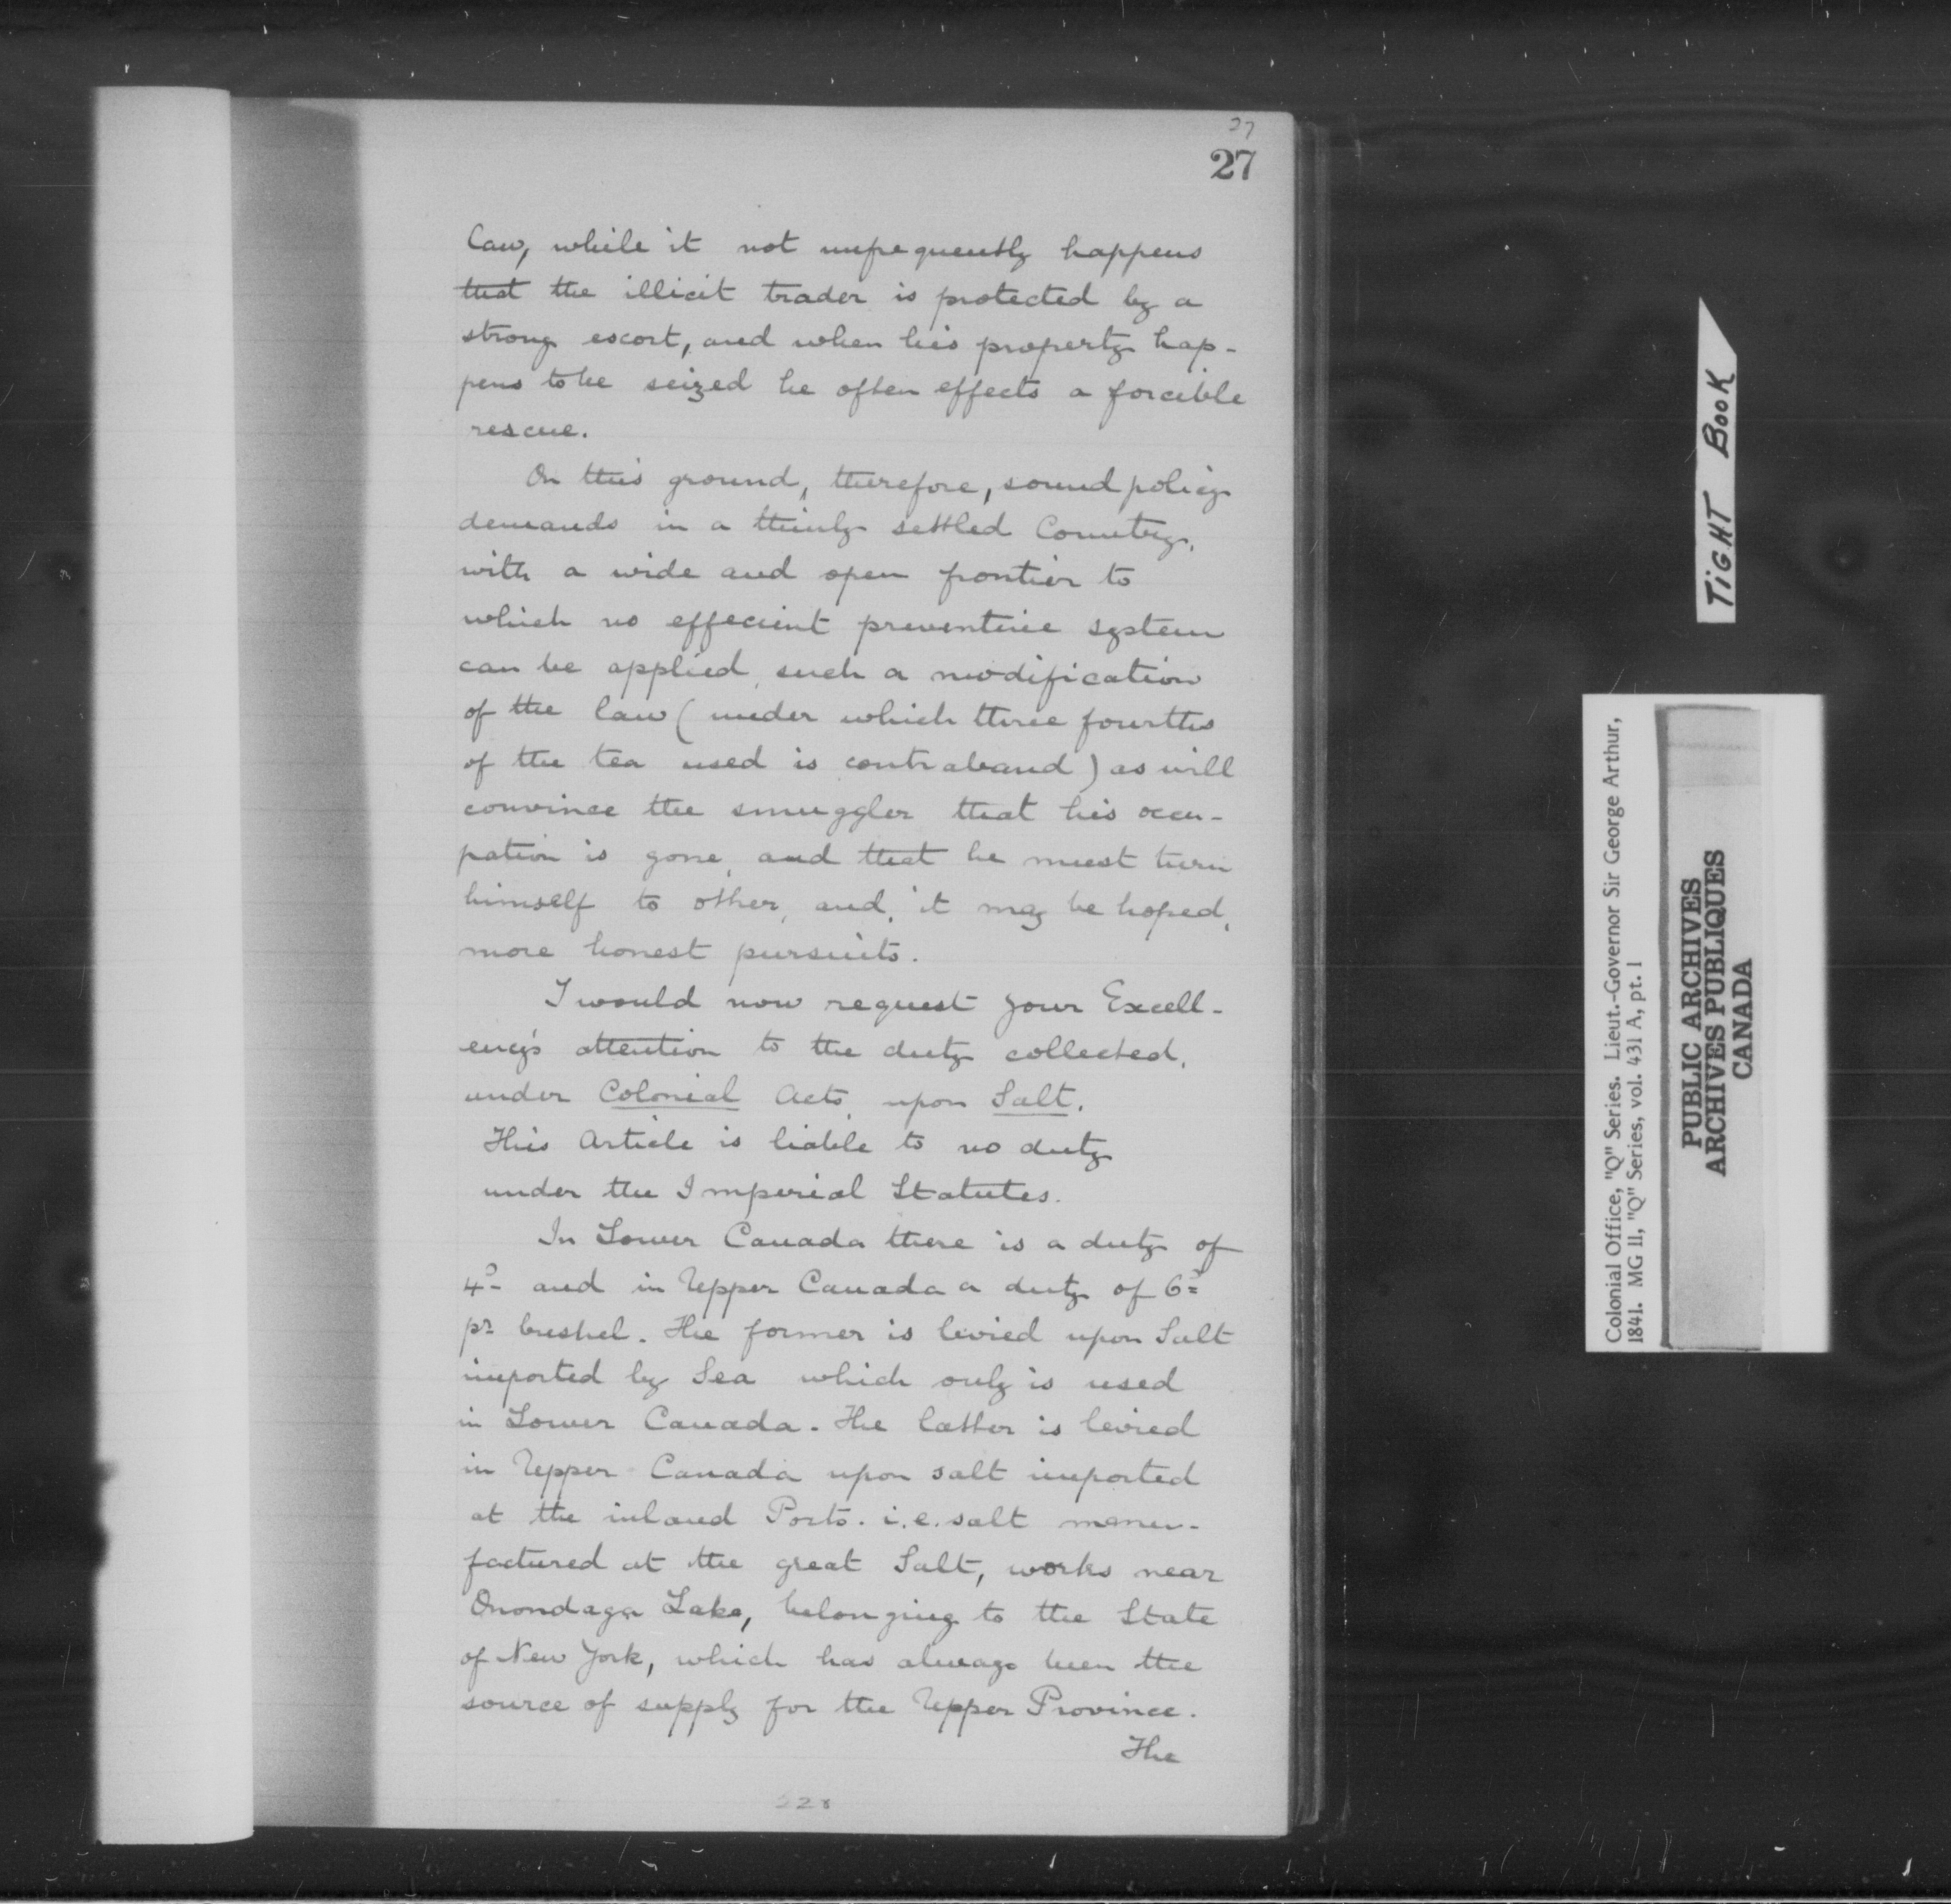 27
27
law, while it not unfrequently happens
that the illicit trader is protected by a
strong escort, and when his property hap-
pens to be seized he often effects a forcible
rescue.
On this ground, therefore, sound policy
demands in a thinly settled Country,
with a wide and open frontier to
which no effecient preventive system
can be applied, such a modification
of the law (under which three fourths
of the tea used is contraband) as will
convince the smuggler that his occu-
pation is gone, and that he must turn
himself to other, and, it may be hoped,
more honest pursuits.
I would now request your Excell-
ency's attention to the duty collected,
under Colonial Acts, upon Salt.
This Article is liable to no duty
under the Imperial Statutes.
In Lower Canada there is a duty of
4D and in Upper Canada a duty of 6D
pr bushel. The former is levied upon Salt
imported by Sea which only is used
in Lower Canada. The latter is levied
in Upper Canada upon salt imported
at the inland Ports. i.e. salt manu-
factured at the great Salt, works near
Onondaga Lake, belonging to the State
of New York, which has always been the
source of supply for the Upper Province.
The
TIGHT BOOK
Colonial Office, "Q" Series. Lieut.-Governor Sir George Arthur,
1841. MG 11, "Q" Series, vol. 431 A, pt. 1
PUBLIC ARCHIVES
ARCHIVES PUBLIQUES
CANADA